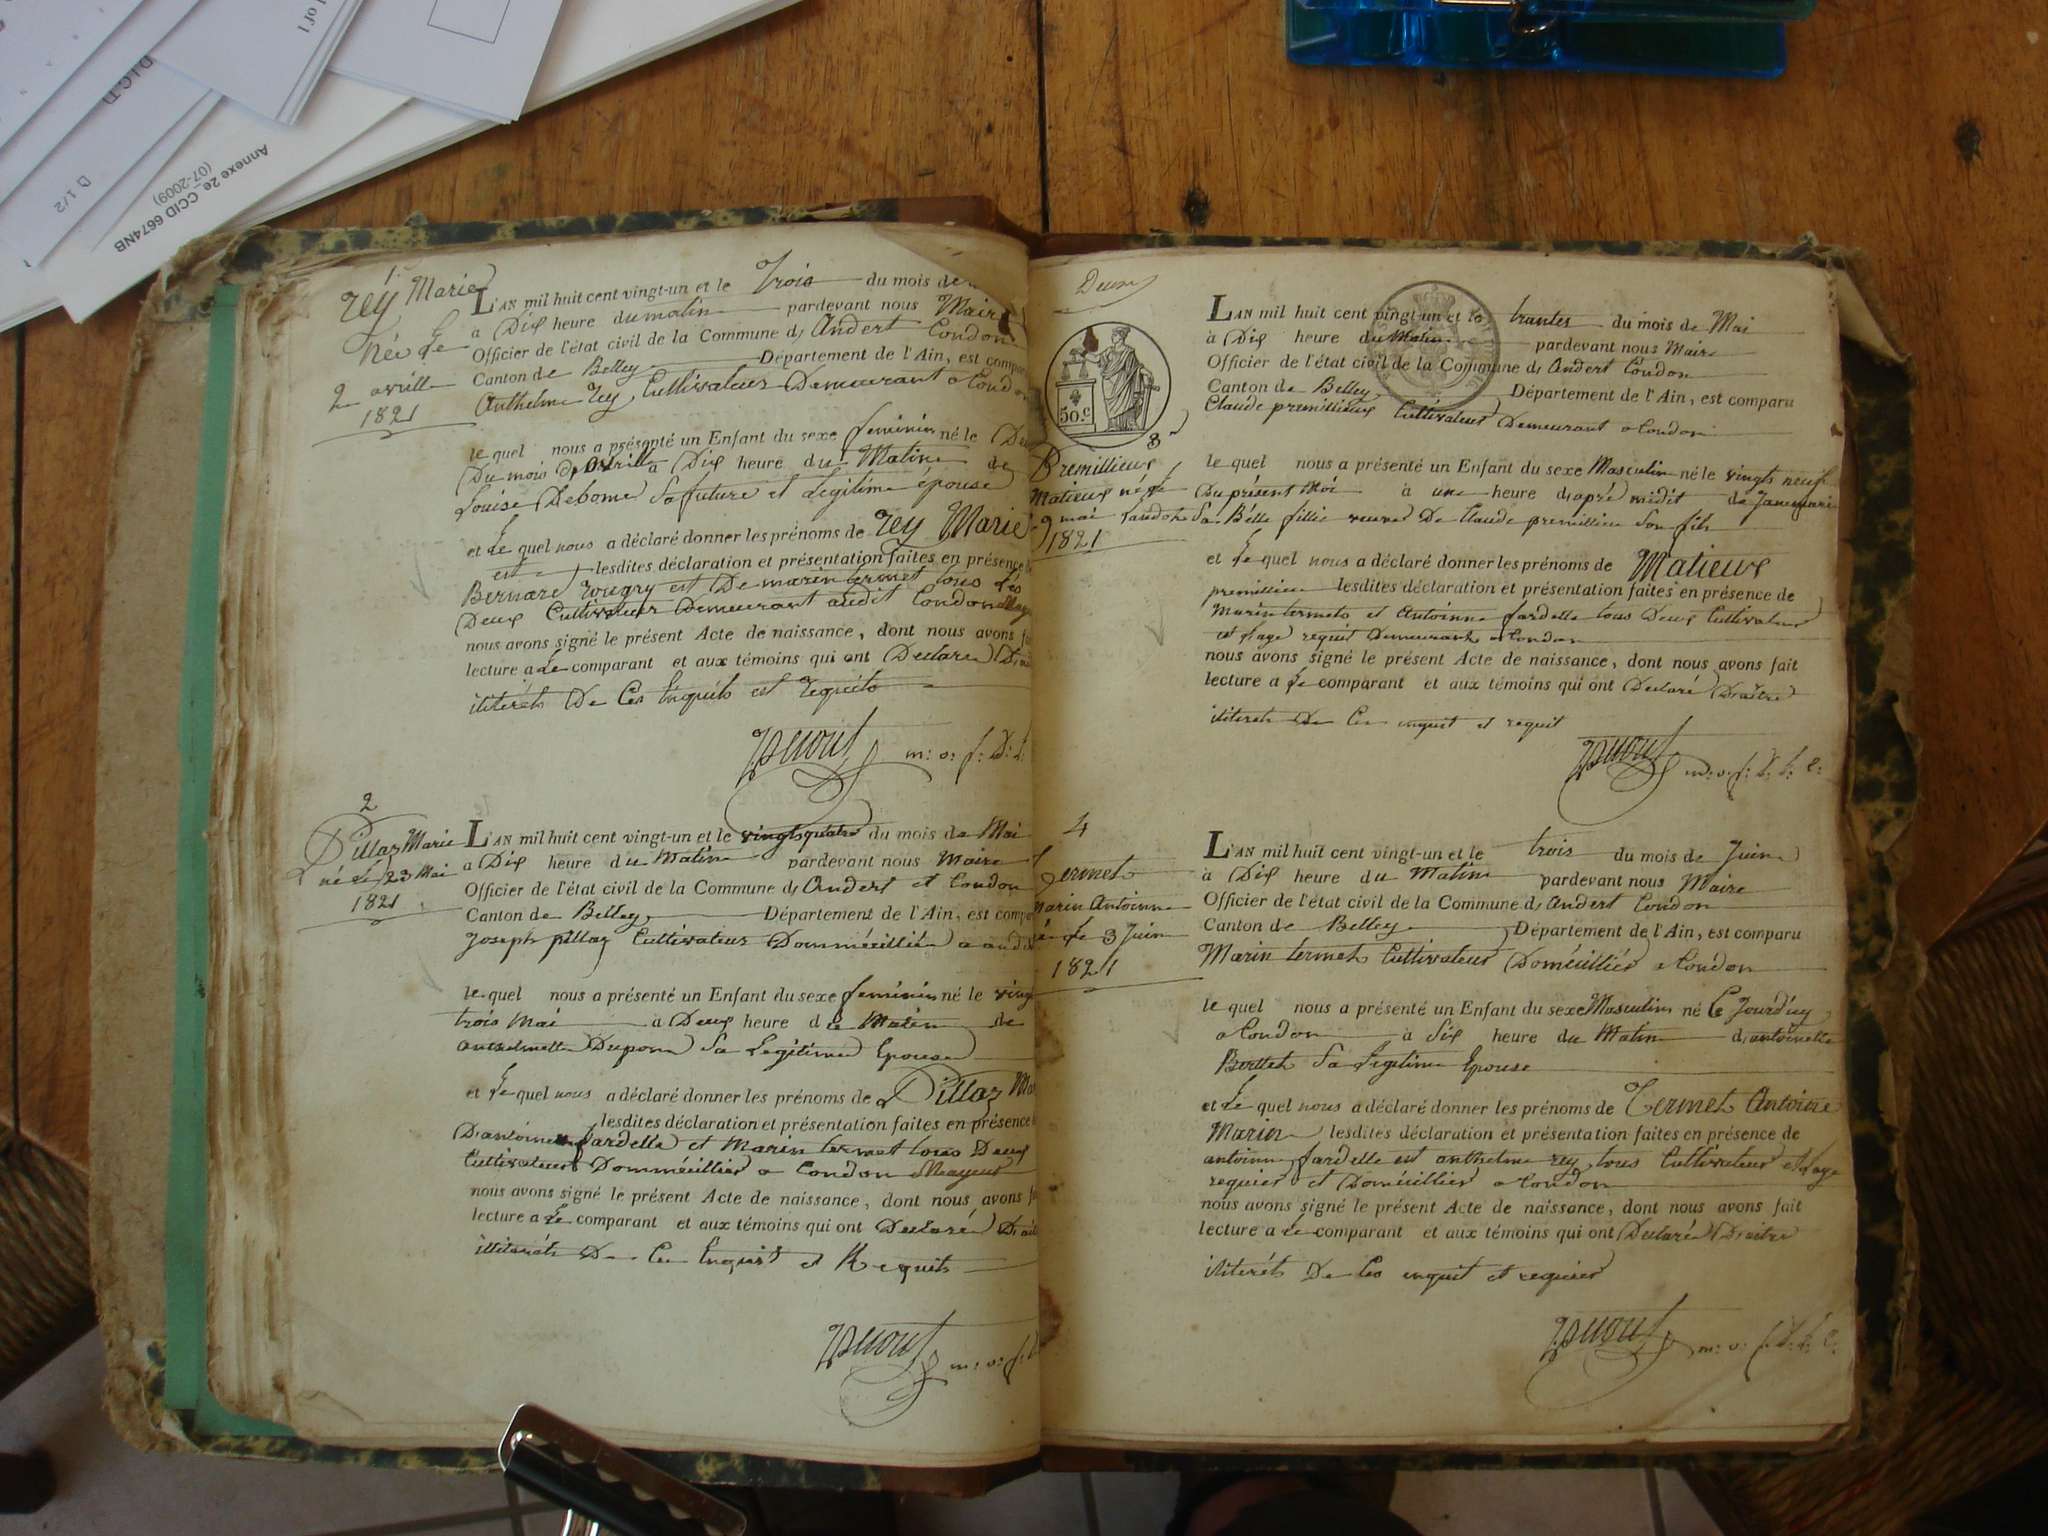 1 of 1
D.I.C. D
1/2
Annexe 2e_CCID 6674NB
(07-2009)
1.
rey Marie
Née Le
2 avrille
1821
L'AN mil huit cent vingt-un et le Trois du mois de
a Dix heure du matin pardevant nous Maire
Officier de l'état civil de la Commune d Andert Condon
Canton de Belley Département de l'Ain, est compa
Anthelme rey Cultivateur Demeurant a Cond
le quel nous a présenté un Enfant du sexe feminin né le
Du mois d avrille a Dix heure du Matin de
Louise Debome Sa future et Legitime épouse
et Le quel nous a déclaré donner les prénoms de rey Marie
est lesdites déclaration et présentation faites en présence
Bernard rougry est De marin termet tous Les
Deux Cultivateur Demeurant audit Condon
nous avons signé le présent Acte de naissance, dont nous avons
lecture a Le comparant et aux témoins qui ont Declaré
iliterés De Ces Enquits est requits
m: o: f: D:
2
Pillaz Marie
né Le 23 Mai
1821
L'AN mil huit cent vingt-un et le vingt quatre du mois de Mai
a Dix heure du Matin pardevant nous Maire
Officier de l'état civil de la Commune d Andert et Condon
Canton de Belley Département de l'Ain, est compa
Joseph pillaz Cultivateur Dommécillié a
le quel nous a présenté un Enfant du sexe feminin né le vingt
trois Mai a Deux heure de Matin de
Dupon Sa Legitime Epouse
et Le quel nous a déclaré donner les prénoms de Pillaz
lesdites déclaration et présentation faites en présence
D'antoine fardelle et Marin termet tous Deux
Cultivateur Dommécillier a Condon Mayeur
nous avons signé le présent Acte de naissance, dont nous avons
lecture a Le comparant et aux témoins qui ont Declaré
illiterés De Ces Enquist et Requits
m: o: f:
Deux
50.c
3
Premillieux
Matieux né le
mai
1821
L'AN mil huit cent vingt-un et le trantes du mois de Mai
à Dix heure du Matin pardevant nous Maire
Officier de l'état civil de la Commune d Andert Condon
Canton de Belley Département de l'Ain, est comparu
Claude premillieux Cultivateur Demeurant a Condon
le quel nous a présenté un Enfant du sexe Masculin né le vingts neuf
Du présent Moi à une heure d apré midit de
Sa Bélle fillie veuve De Claude premillieu Son fils
et Le quel nous a déclaré donner les prénoms de Matieux
premillieu lesdites déclaration et présentation faites en présence de
Marin termet et Antoinne fardelle tous Deux Cultivateur
et d'age requit Demeurant a Condon
nous avons signé le présent Acte de naissance, dont nous avons fait
lecture a Le comparant et aux témoins qui ont Declaré D'aitre
iliterés De Ces enquit et requit
m: o: f: D: L: C:
4
Termet
Marin Antoinne
né Le 3 Juin
1821
L'AN mil huit cent vingt-un et le trois du mois de Juin
à Dix heure du Matin pardevant nous Maire
Officier de l'état civil de la Commune d Andert Condon
Canton de Belley Département de l'Ain, est comparu
Marin termet Cultivateur Doméeillier a Condon
le quel nous a présenté un Enfant du sexe Masculin né Ce Jourd'uy
a Condon à Six heure du Matin d antoinette
Sa Legitime Epouse
et Le quel nous a déclaré donner les prénoms de Termet Antoine
Marin lesdites déclaration et présentation faites en présence de
antoinne fardelle est anthelme rey tous Cultivateur et d'age
requier et Doméeillier a Condon
nous avons signé le présent Acte de naissance, dont nous avons fait
lecture a Le comparant et aux témoins qui ont Declaré D'aitre
iliterés De Ces enquit et requier
m: o: f: D: L: C: